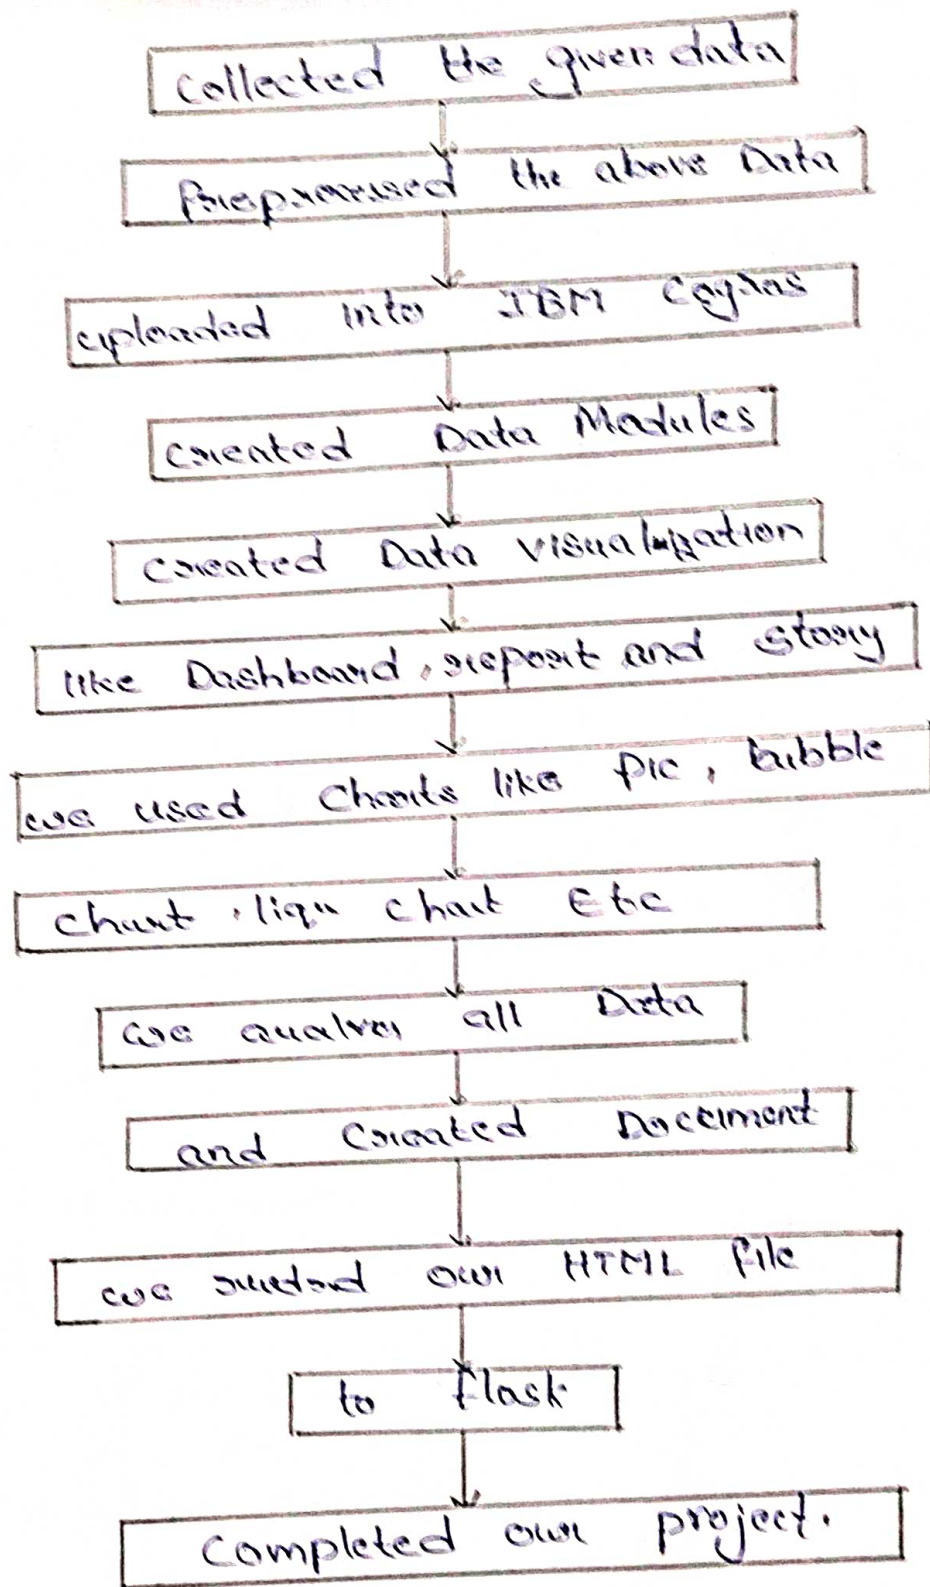 Collected the given data
Preprocessed the above Data
uploaded into IBM Cognos
Created Data Modules
Created Data visualization
like Dashboard, report and story
we used Charts like pie, bubble
Chart, Chart Etc
we all Data
and Created Document
we our HTML file
to flask
Completed our project.